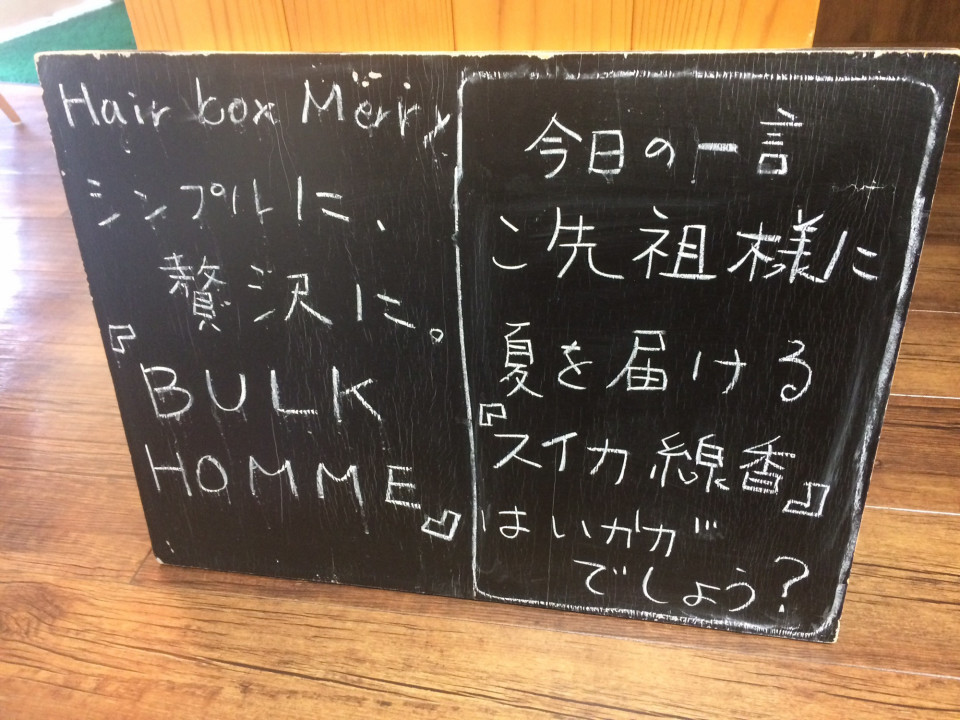 Hair box Merry
シンプルに、
贅沢に。
『BULK
HOMME』
今日の一言
ご先祖様に
夏を届ける
『スイカ線香』
はいかが
でしょう?